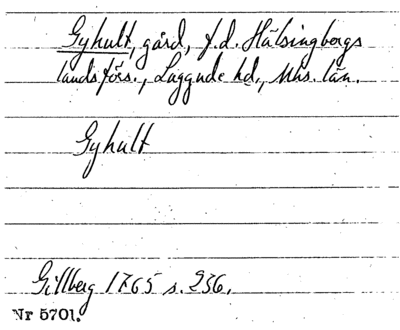 Gyhult, gård, f.d. Hälsingbergs
landsförs., Luggude hd., Mhs. län.
Gyhult
Gillberg 1765 s. 236.
Nr 5701.